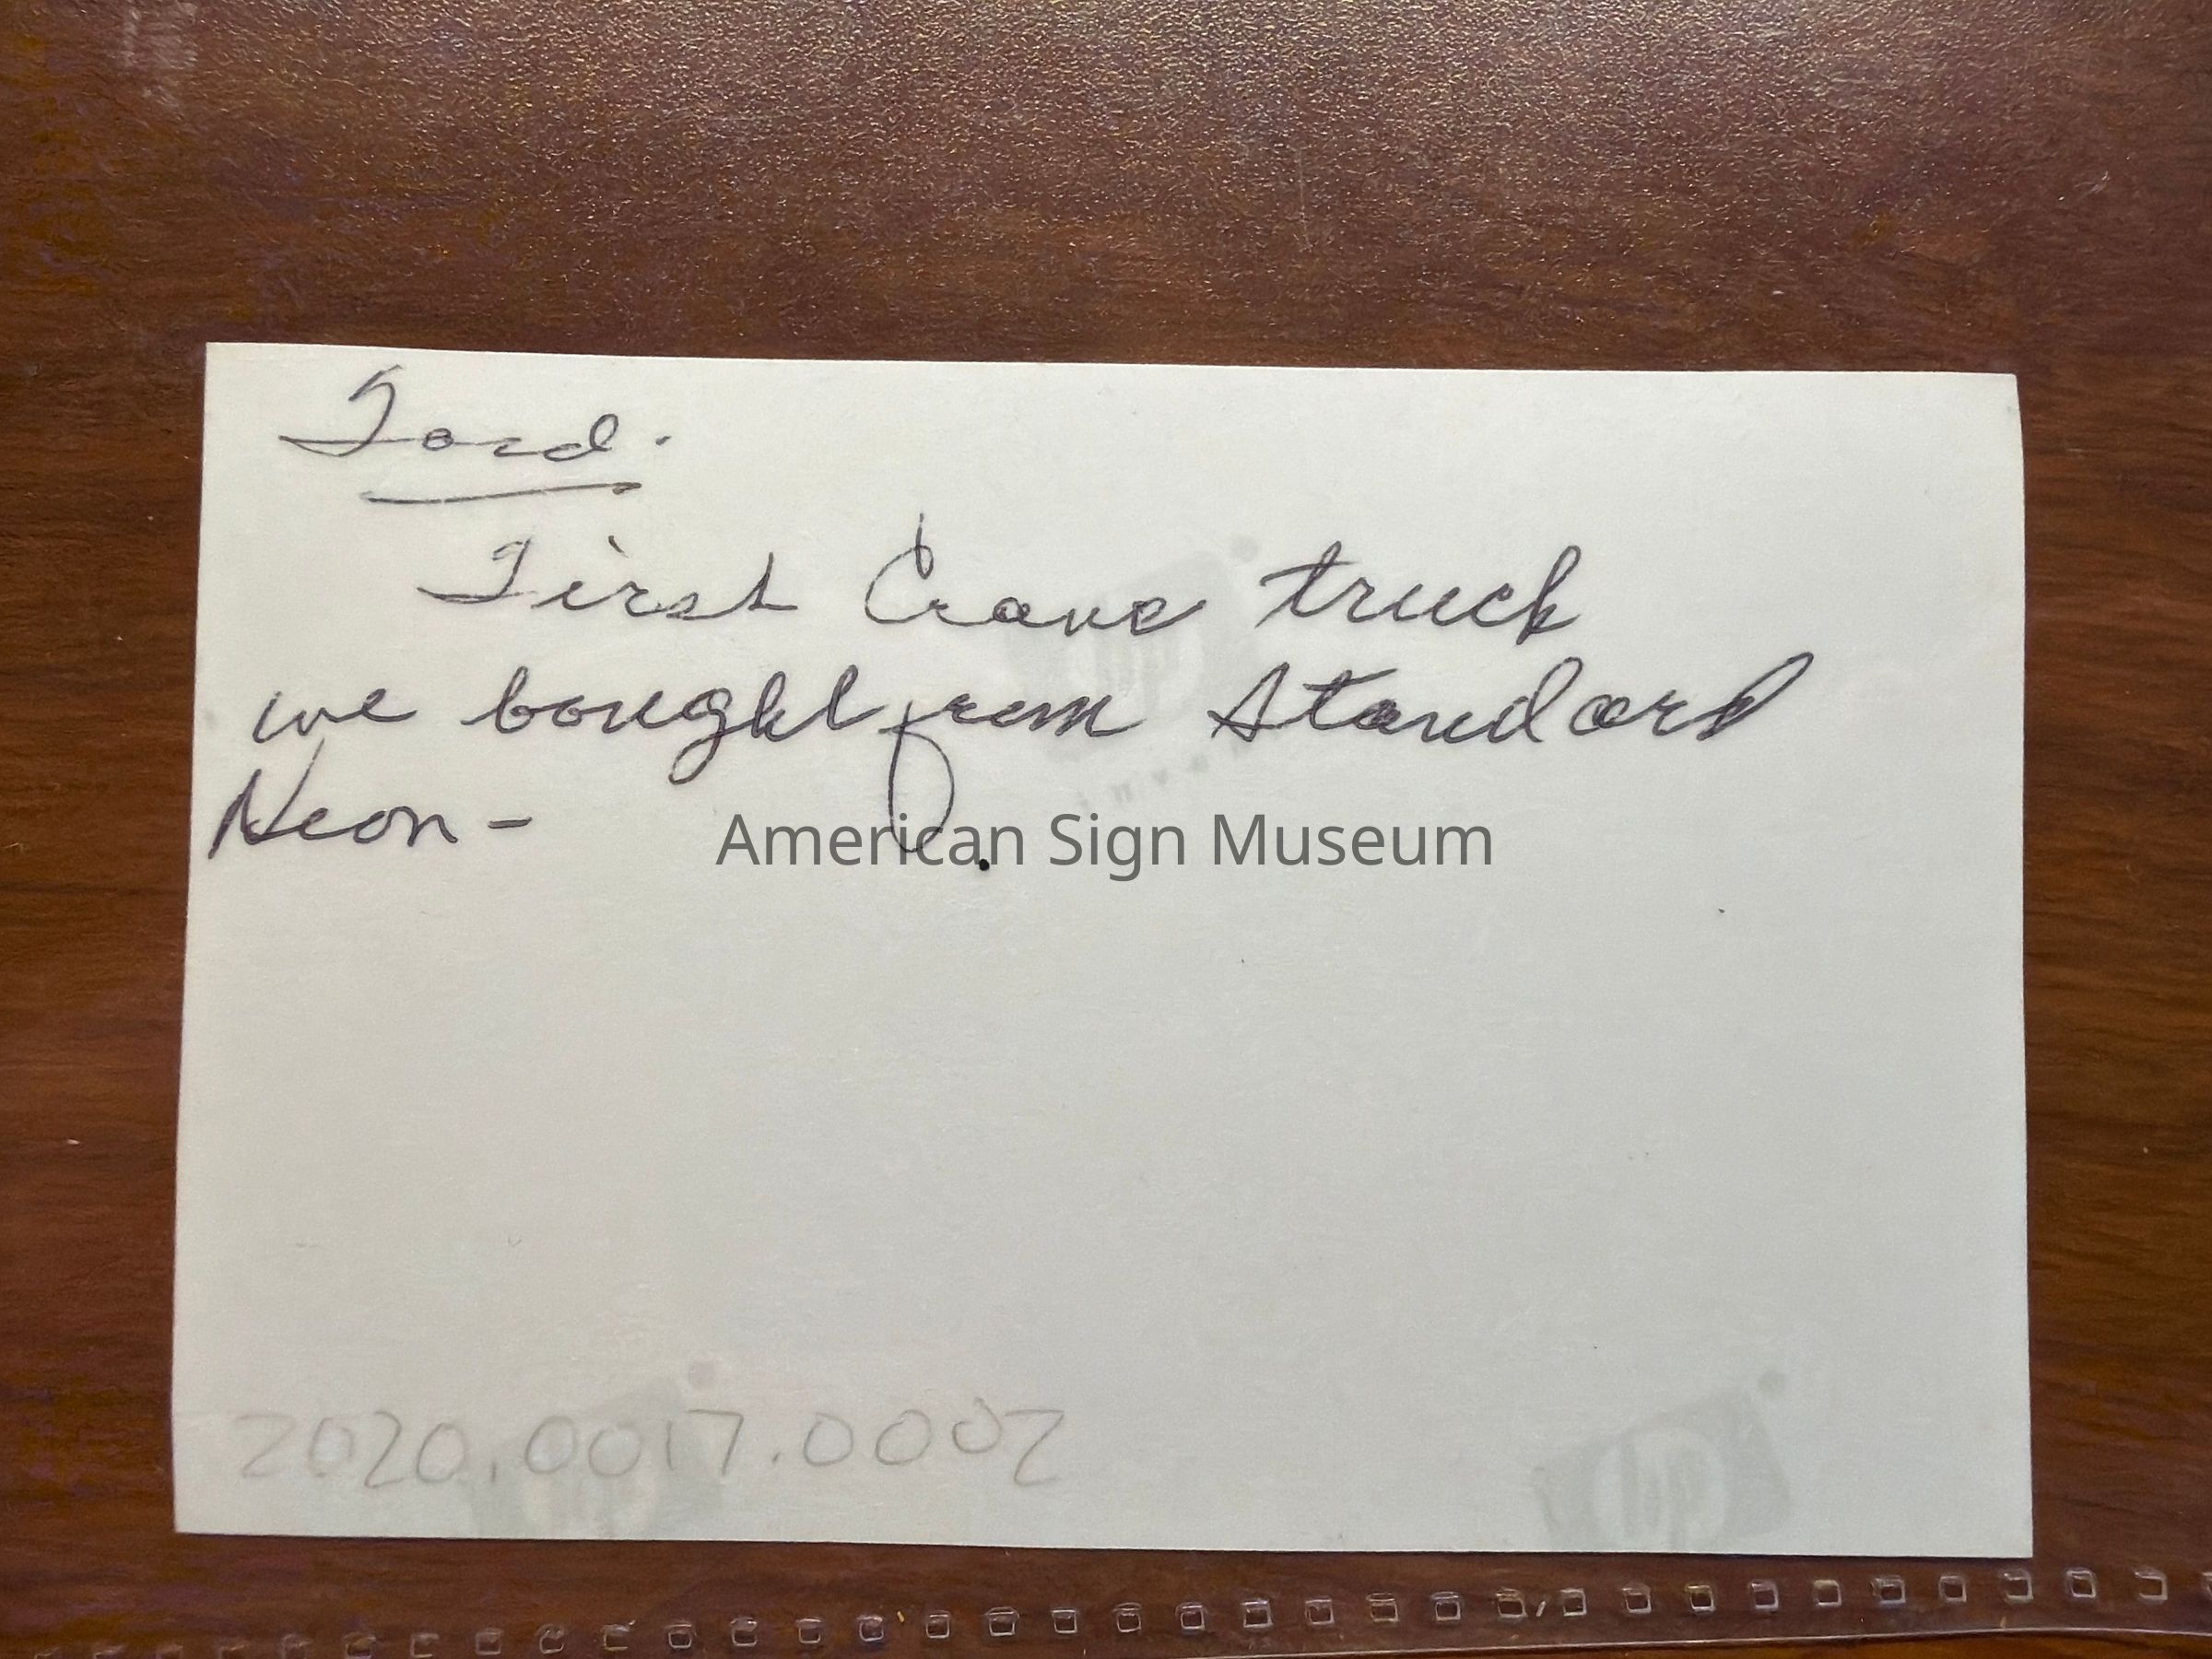 Ford.
First Crane truck
we bought from Standard
Neon -
American Sign Museum
2020.0017.0002